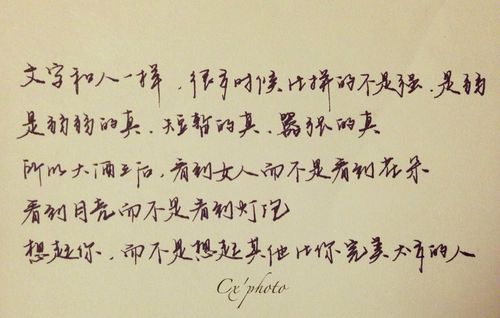 文字和人一样，很多时候比拼的不是强，是弱
是弱弱的真，短暂的真，嚣张的真
所以大酒之后，看到女人而不是看到花朵
看到月亮而不是看到灯泡
想起你，而不是想起其他比你完美太多的人
Cx'photo